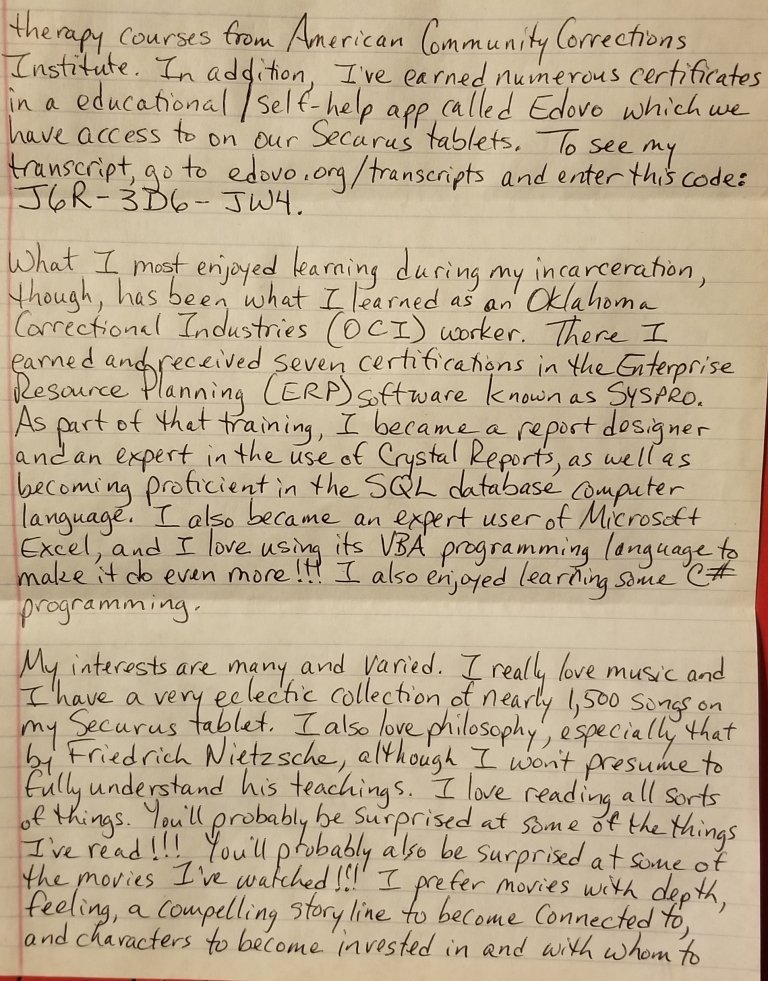 therapy courses from American Community Corrections
Institute. In addition, I've earned numerous certificates
in a educational/self-help app called Edovo which we
have access to on our Securus tablets. To see my
transcript, go to edovo.org/transcripts and enter this code:
J6R-3D6-JW4.
What I most enjoyed learning during my incarceration,
though, has been what I learned as an Oklahoma
Correctional Industries (OCI) worker. There I
earned and received seven certifications in the Enterprise
Resource Planning (ERP) software known as SYSPRO.
As part of that training, I became a report designer
and an expert in the use of Crystal Reports, as well as
becoming proficient in the SQL database computer
language. I also became an expert user of Microsoft
Excel, and I love using its VBA programming language to
make it do even more!!! I also enjoyed learning some C#
programming.
My interests are many and varied. I really love music and
I have a very eclectic collection of nearly 1,500 songs on
my Securus tablet. I also love philosophy, especially that
by Friedrich Nietzsche, although I won't presume to
fully understand his teachings. I love reading all sorts
of things. You'll probably be surprised at some of the things
I've read!!! You'll probably also be surprised at some of
the movies I've watched!!! I prefer movies with depth,
feeling, a compelling story line to become connected to,
and characters to become invested in and with whom to